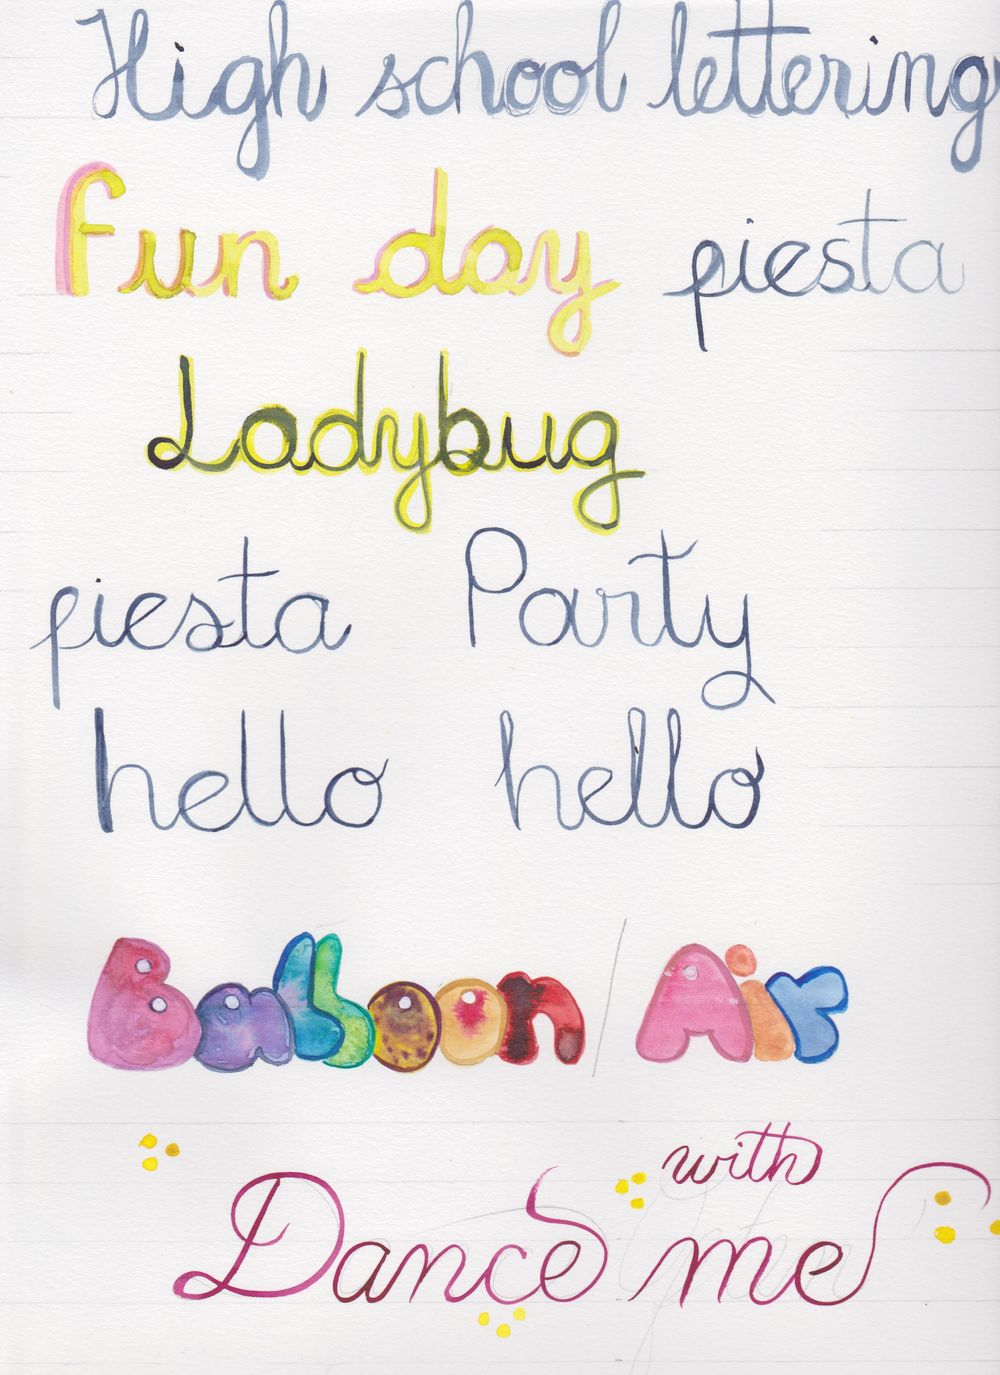 High school lettering
fun day piesta
Ladybug
piesta Party
hello hello
Balloon / Air
with
Dance me